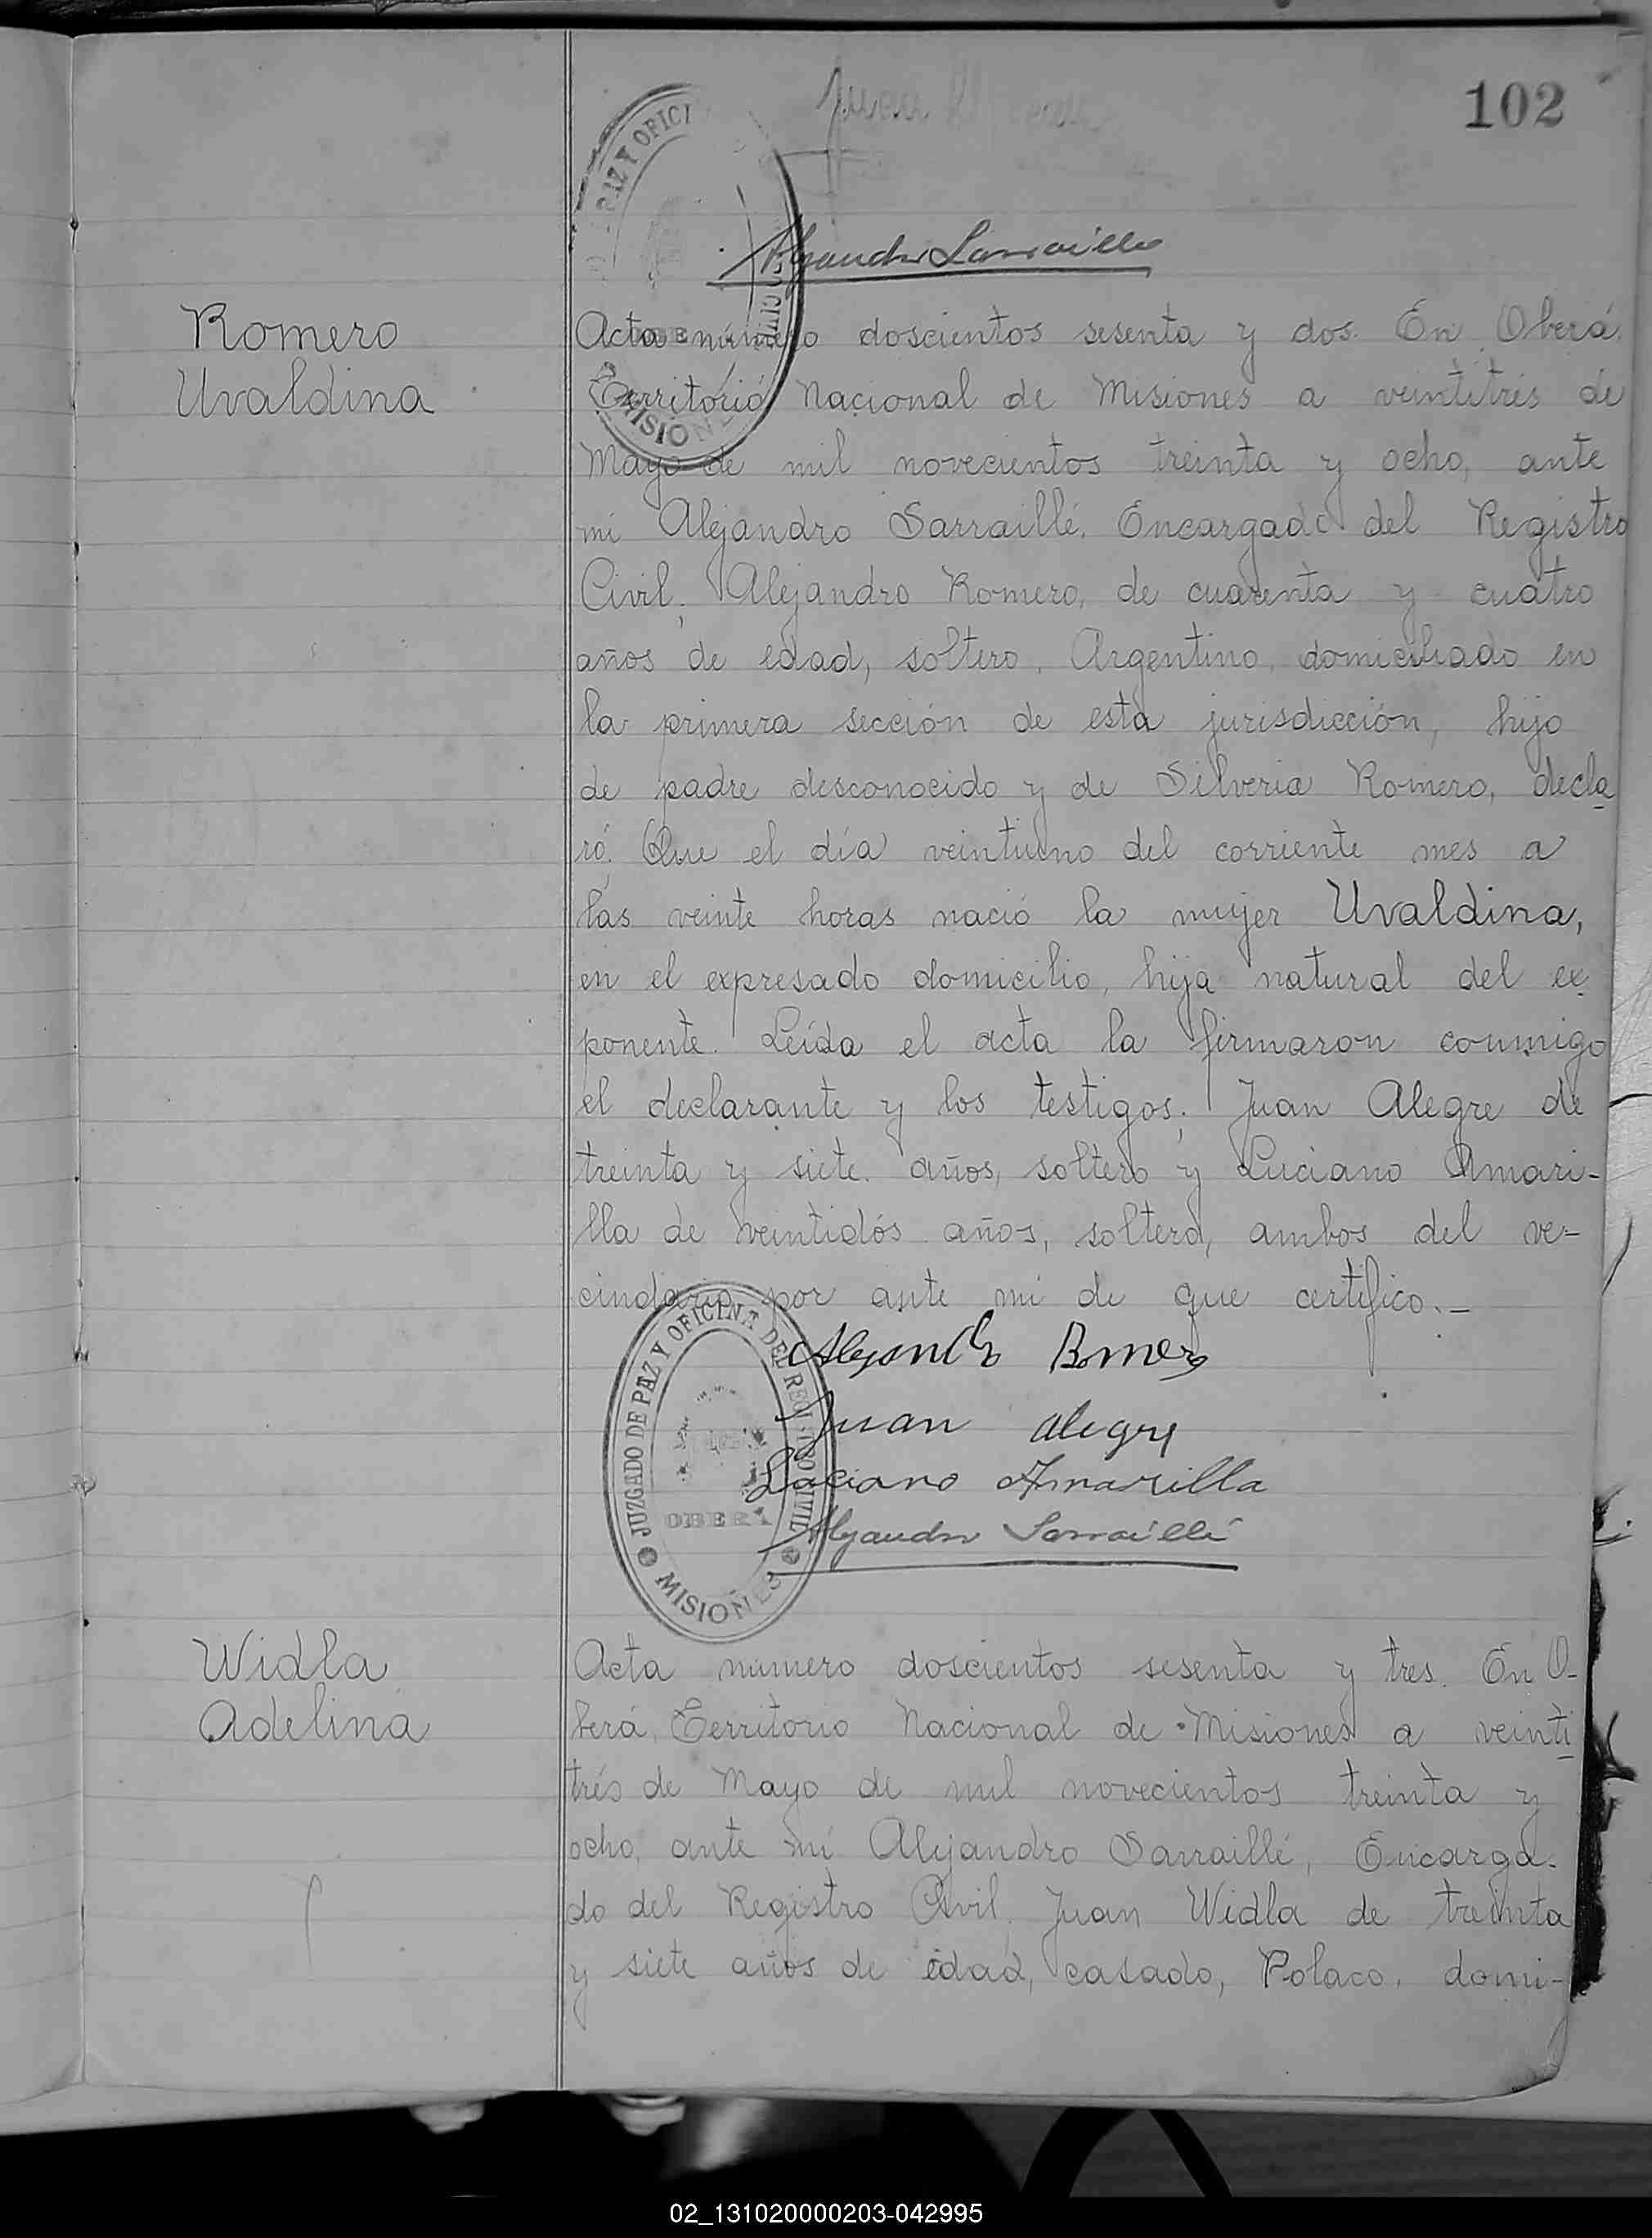 102
Juan
PAZ Y OFICI
CIVIL
MISIONE
Alejandro Sarraillé
Romero
Uvaldina
Acta número doscientos sesenta y dos. En Oberá,
Territorio Nacional de Misiones a veintitrés de
Mayo de mil novecientos treinta y ocho, ante
mi Alejandro Sarraillé, Encargado del Registro
Civil; Alejandro Romero, de cuarenta y cuatro
años de edad, soltero, Argentino, domiciliado en
la primera sección de esta jurisdicción, hijo
de padre desconocido y de Silveria Romero, decla
ró; Que el día veintiuno del corriente mes a
las veinte horas nació la mujer Uvaldina,
en el expresado domicilio, hija natural del ex
ponente. Leída el acta la firmaron conmigo
el declarante y los testigos; Juan Alegre de
treinta y siete años, soltero y Luciano Amari-
lla de veintidós años, soltero, ambos del ve-
cindario por ante mi de que certifico.-
Alejandro Romero
Juan Alegre
Luciano Amarilla
Alejandro Sarraillé
JUZGADO DE PAZ Y OFICINA DEL REGISTRO CIVIL
OBERÁ
MISIONES
Widla
Adelina
Acta número doscientos sesenta y tres. En O-
berá, Territorio Nacional de Misiones a veinti
trés de Mayo de mil novecientos treinta y
ocho, ante mí Alejandro Sarraillé, Encarga-
do del Registro Civil, Juan Widla de treinta
y siete años de edad, casado, Polaco, domi-
02_131020000203-042995